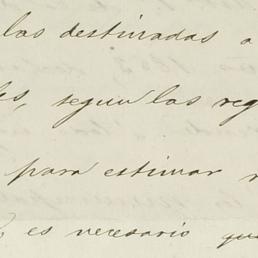 las destinadas a
es, segun las reg
para estimar
es necesario que